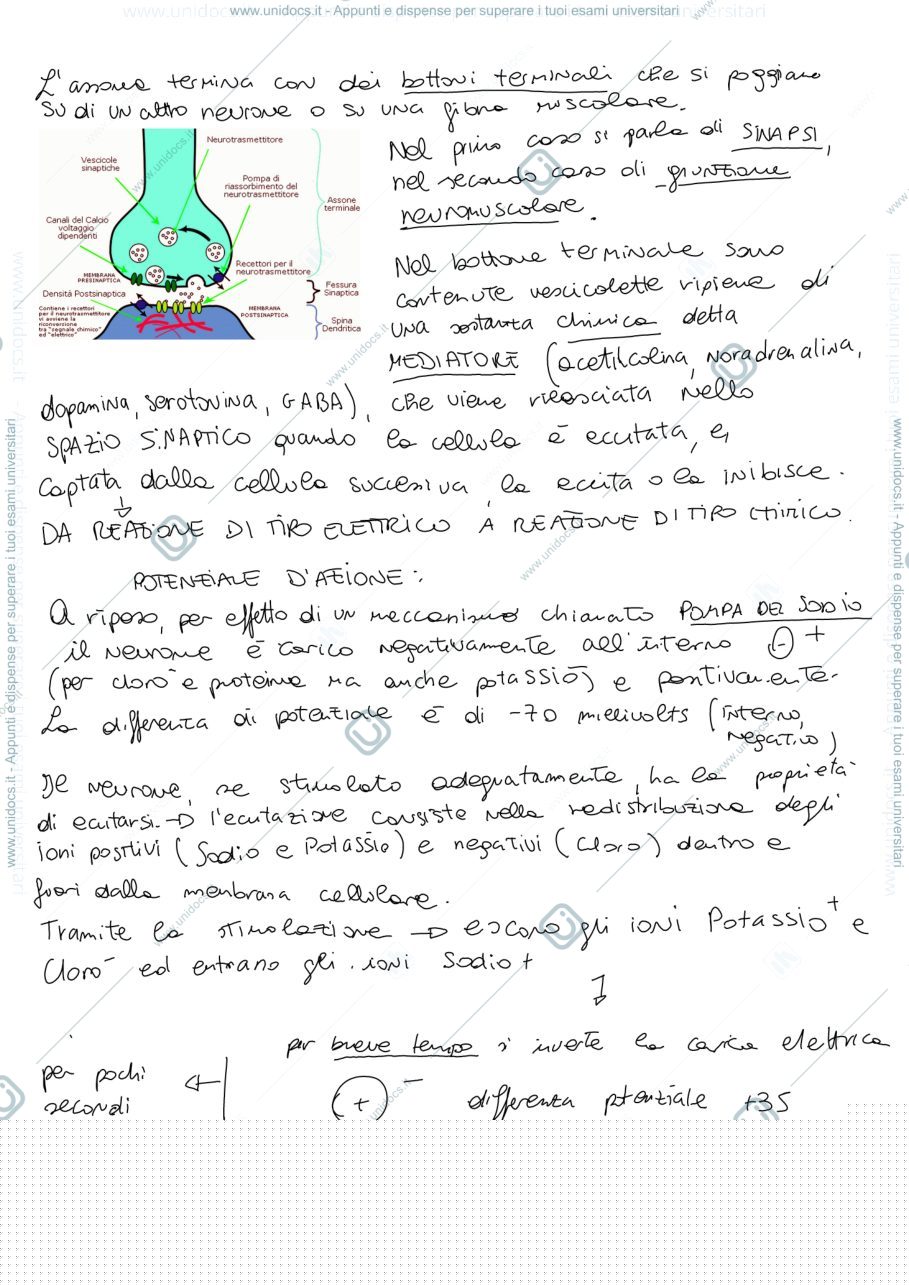 www.unidocs.it - Appunti e dispense per superare i tuoi esami universitari
L'assone termina con dei bottoni terminali che si poggiano
su di un altro neurone o su una fibra muscolare.
Nel primo caso si parla di SINAPSI,
nel secondo caso di giunzione
neuromuscolare.
Neurotrasmettitore
Vescicole
sinaptiche
Pompa di
riassorbimento del
neurotrasmettitore
Assone
terminale
Canali del Calcio
voltaggio
dipendenti
Recettori per il
neurotrasmettitore
MEMBRANA
PRESINAPTICA
Densità Postsinaptica
Fessura
Sinaptica
Contiene i recettori
per il neurotrasmettitore
vi avviene la
riconversione
tra "segnale chimico"
ed "elettrico"
MEMBRANA
POSTSINAPTICA
Spina
Dendritica
Nel bottone terminale sono
contenute vescicolette ripiene di
una sostanza chimica detta
MEDIATORE (acetilcolina, noradrenalina,
dopamina, serotonina, GABA), che viene rilasciata nello
SPAZIO SINAPTICO quando la cellula è eccitata, e,
captata dalla cellula successiva, la eccita o la inibisce.
↓
DA REAZIONE DI TIPO ELETTRICO A REAZIONE DI TIPO CHIMICO.
POTENZIALE D'AZIONE:
A riposo, per effetto di un meccanismo chiamato POMPA DEL SODIO
il neurone è carico negativamente all'interno (-) +
(per cloro e proteine ma anche potassio) e positivamente.
La differenza di potenziale è di -70 millivolts (interno,
negativo)
Il neurone, se stimolato adeguatamente, ha la proprietà
di eccitarsi. → l'eccitazione consiste nella redistribuzione degli
ioni positivi (Sodio e Potassio) e negativi (Cloro) dentro e
fuori dalla membrana cellulare.
Tramite la stimolazione → escono gli ioni Potassio+ e
Cloro- ed entrano gli ioni Sodio+
↓
per breve tempo si inverte la carica elettrica
per pochi ←
secondi
(+) - differenza ptenziale +35
www.unidocs.it - Appunti e dispense per superare i tuoi esami universitari
www.unidocs.it - Appunti e dispense per superare i tuoi esami universitari